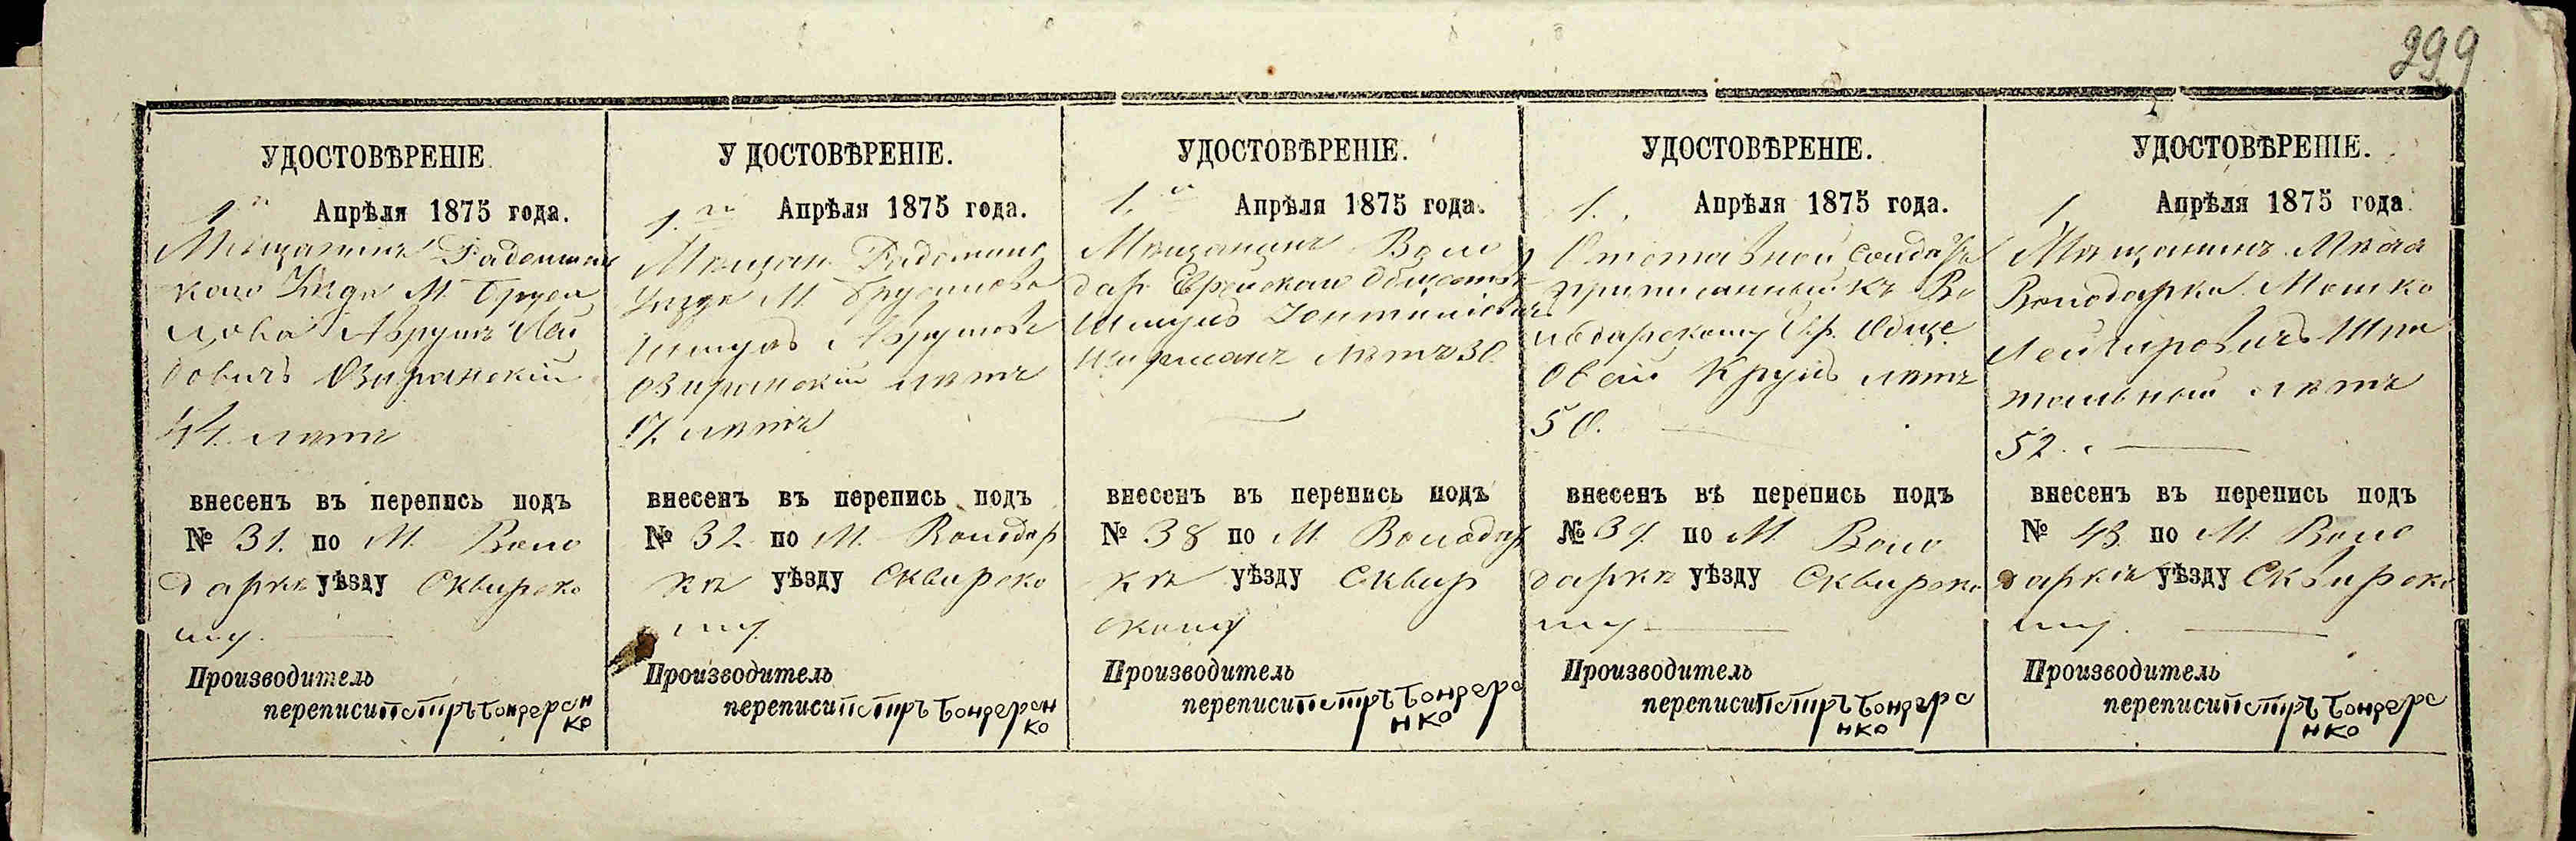 299
УДОСТОВѢРЕНІЕ
1 Апрѣля 1875 года.
Мѣщанинъ Радомысль
каго Уѣзда М. Брусил
лова Абрумъ Лей
бовичъ Озиранскій
44. лѣтъ
внесенъ въ перепись подъ
№ 31. по М. Воло
даркѣ уѣзду Сквирско
му.
Производитель
переписи Петръ Бондарен
ко
УДОСТОВѢРЕНІЕ.
1. Апрѣля 1875 года.
Мѣщан Радомысл
Уѣзда М. Брусилова
Шмуль Абрумов
Озиранскій лѣтъ
17. лѣтъ
внесенъ въ перепись подъ
№ 32. по М. Володар
кѣ уѣзду Сквирско
му.
Производитель
переписи Петръ Бондарен
ко
УДОСТОВѢРЕНІЕ.
1. Апрѣля 1875 года.
Мѣщанинъ Воло
дар Еврейскаго Общества
Шмуль
лѣтъ 30.
внесенъ въ перепись подъ
№ 38 по М. Володар
кѣ уѣзду Сквир
скому
Производитель
переписи Петръ Бондаре
нко
УДОСТОВѢРЕНІЕ.
1. Апрѣля 1875 года.
Отставной солдатъ
приписанный къ Во
лодарскому Евр. Обще
Овсій Круль лѣтъ
50.
внесенъ въ перепись подъ
№ 39. по М. Воло
даркѣ уѣзду Сквирско
му
Производитель
переписи Петръ Бондаре
нко
УДОСТОВѢРЕНІЕ.
1 Апрѣля 1875 года.
Мѣщанинъ Мѣста
Володарка Мошко
Лейзировичъ Шпи
тальный лѣтъ
52.
внесенъ въ перепись подъ
№ 43. по М. Воло
даркѣ уѣзду Сквирско
му.
Производитель
переписи Петръ Бондаре
нко